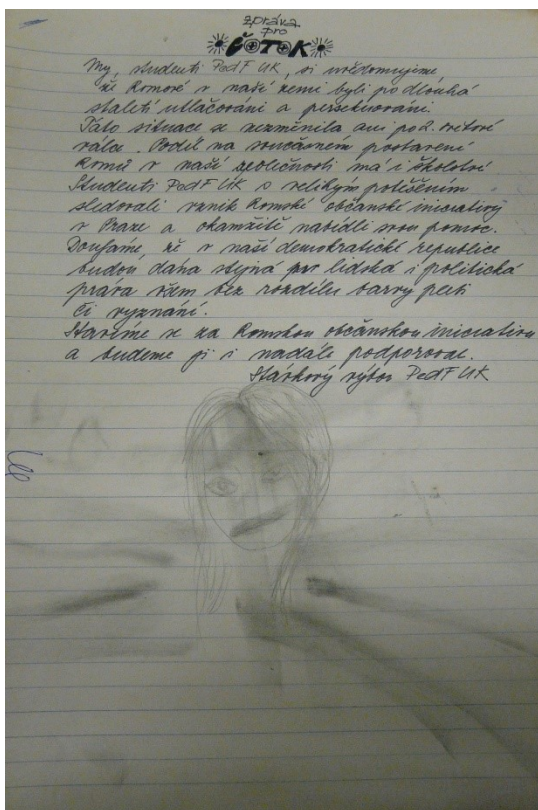 zpráva
pro
ČOTOK
My, studenti PedF UK, si uvědomujeme,
že Romové v naší zemi byli po dlouhá
staletí utlačováni a persekuováni.
Tato situace se nezměnila ani po 2. světové
válce. Podíl na současném postavení
Romů v naší společnosti má i školství
Studenti PedF UK s velikým potěšením
sledovali vznik Romské občanské iniciativy
v Praze a okamžitě nabídli svou pomoc.
Doufáme, že v naší demokratické republice
budou dána stejná lidská i politická
práva vám bez rozdílu barvy pleti
či vyznání.
Stavíme se za Romskou občanskou iniciativu
a budeme ji i nadále podporovat.
Stávkový výbor PedF UK